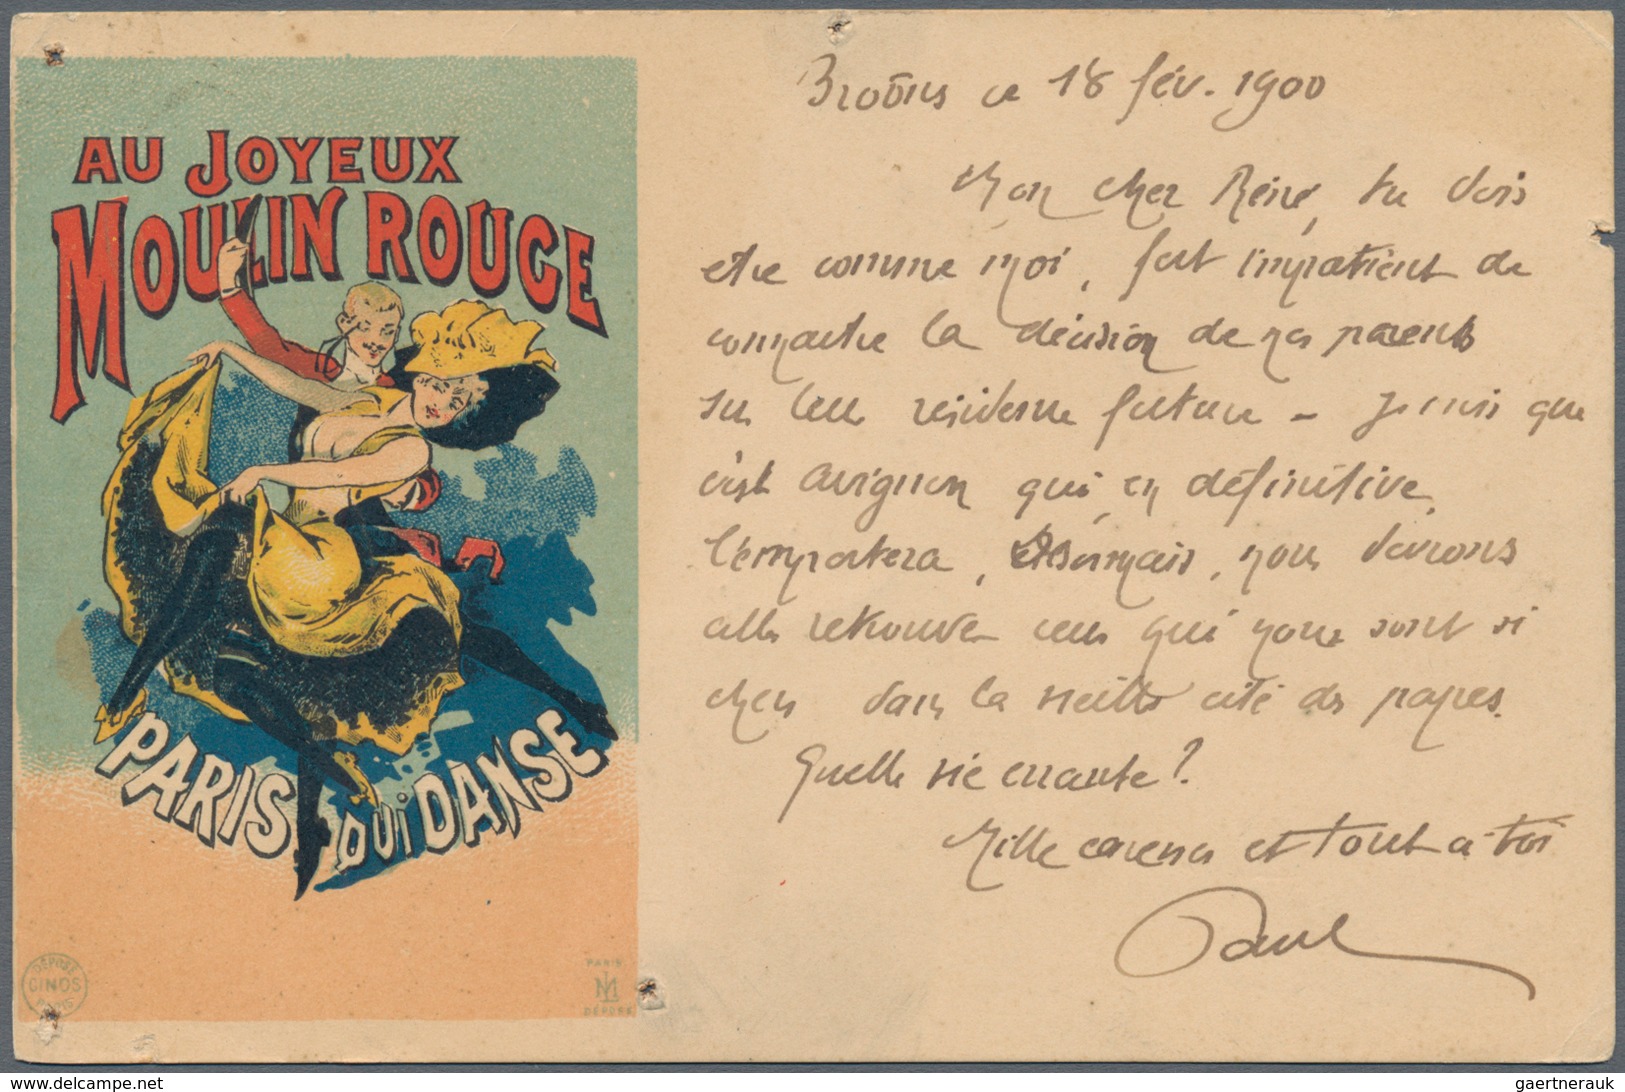 AU JOYEUX
MOULIN ROUGE
PARIS QUI DANSE
DÉPOSÉ
CINOS
PARIS
PARIS
DÉPOSÉ
ce 18 fév. 1900
Mon cher René, tu dois
etre comme moi, fort impatient de
connaitre la décision de nos parents
sur leur résidence future – je crois que
c'est Avignon qui en définitive
l'emportera, Désormais, nous devrons
aller retrouver ceux qui nous sont si
chers dans la vieille cité des papes.
Quelle vie errante?
Mille caresses et tout à toi
Paul
gaertnerauk